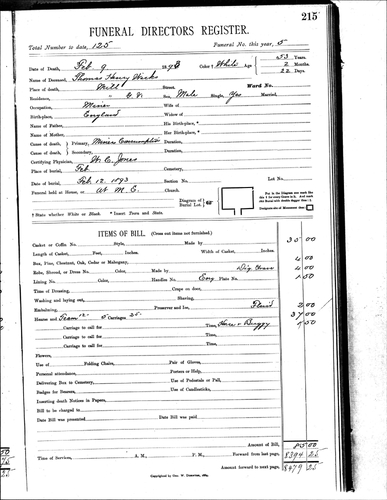 215
FUNERAL DIRECTORS REGISTER.
Total Number to date, 125 Funeral No. this year, 5
Date of Death, Feb 9 1893 Color † White Age 53 Years
2 Months
22 Days.
Name of Deceased, Thomas Henry
Place of death, Mill Street. Ward No.
Residence, G. V. Sex, Male Single, Yes Married,
Occupation, Miner Wife of
Birthplace, England Widow of
Name of Father, His Birthplace, *
Name of Mother, Her Birthplace, *
Cause of death, Primary, Miners Consumption Duration,
Cause of death, Secondary, Duration,
Certifying Physician, W. C. Jones
Place of burial, Cemetery,
Date of burial, Feb 12 1893 Section No. Lot No.
Funeral held at House, or At M. E. Church.
Diagram of Burial Lot.
† State whether White or Black. * Insert Town and State.
ITEMS OF BILL. (Cross out items not furnished.)
Casket or Coffin No. Style, Made by 35 00
Length of Casket, Feet, Inches. Width of Casket, Inches.
Box, Pine, Chestnut, Oak, Cedar or Mahogany, 4 00
Robe, Shroud, or Dress No. Color, Made by 4 00
Lining No. Color, Handles No. Eng Plate No. 1 50
Time of Dressing, Crape on door,
Washing and laying out, Shaving,
Embalming, Preserver and Ice, Fluid 2 00
Hearse and Team 12 Carriages 25 37 00
Carriage to call for Time, Horse & Buggy 1 50
Carriage to call for Time,
Carriage to call for Time,
Carriage to call for Time,
Flowers,
Use of Folding Chairs, Pair of Gloves,
Personal attendance, Porters or Help,
Delivering Box to Cemetery, Use of Pedestals or Pall,
Badges for Bearers, Use of Candlesticks,
Inserting death Notices in Papers,
Bill to be charged to
Date Bill was presented Date Bill was paid
Amount of Bill, 85 00
Time of Services, A. M., P. M., Forward from last page, 8394 25
Amount forward to next page, 8479 25